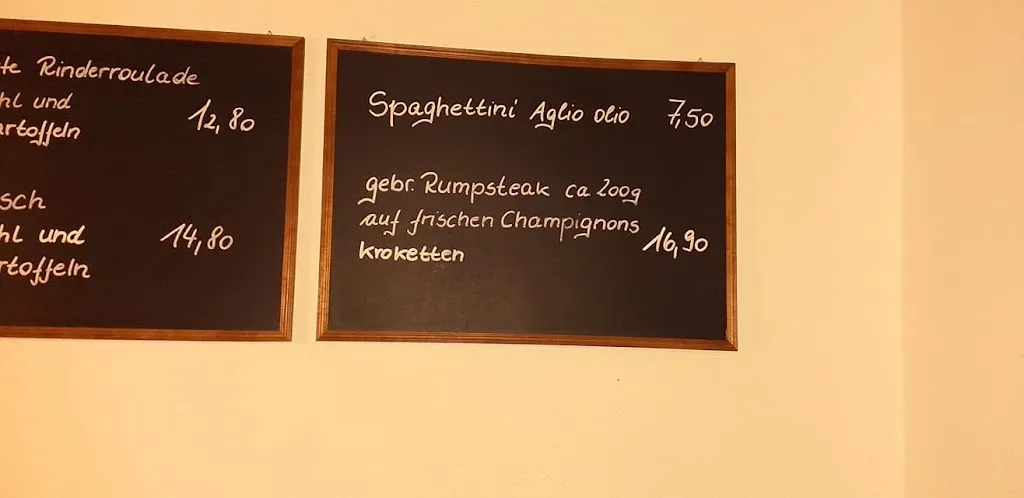 te Rinderroulade
hl und
artoffeln
12,80
sch
hl und
rtoffeln
14,80
Spaghettini Aglio olio 7,50
gebr. Rumpsteak ca 200g
auf frischen Champignons
kroketten
16,90